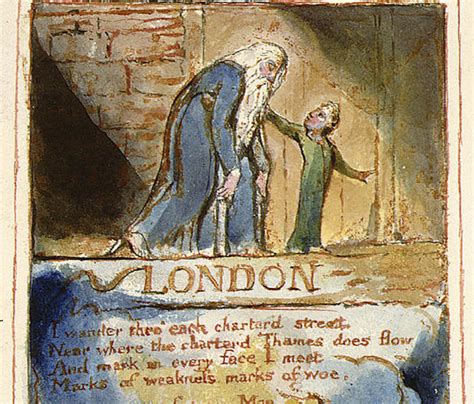 LONDON
I wander thro each charter'd street,
Near where the charter'd Thames does flow
And mark in every face I meet
Marks of weakness marks of woe.
Man